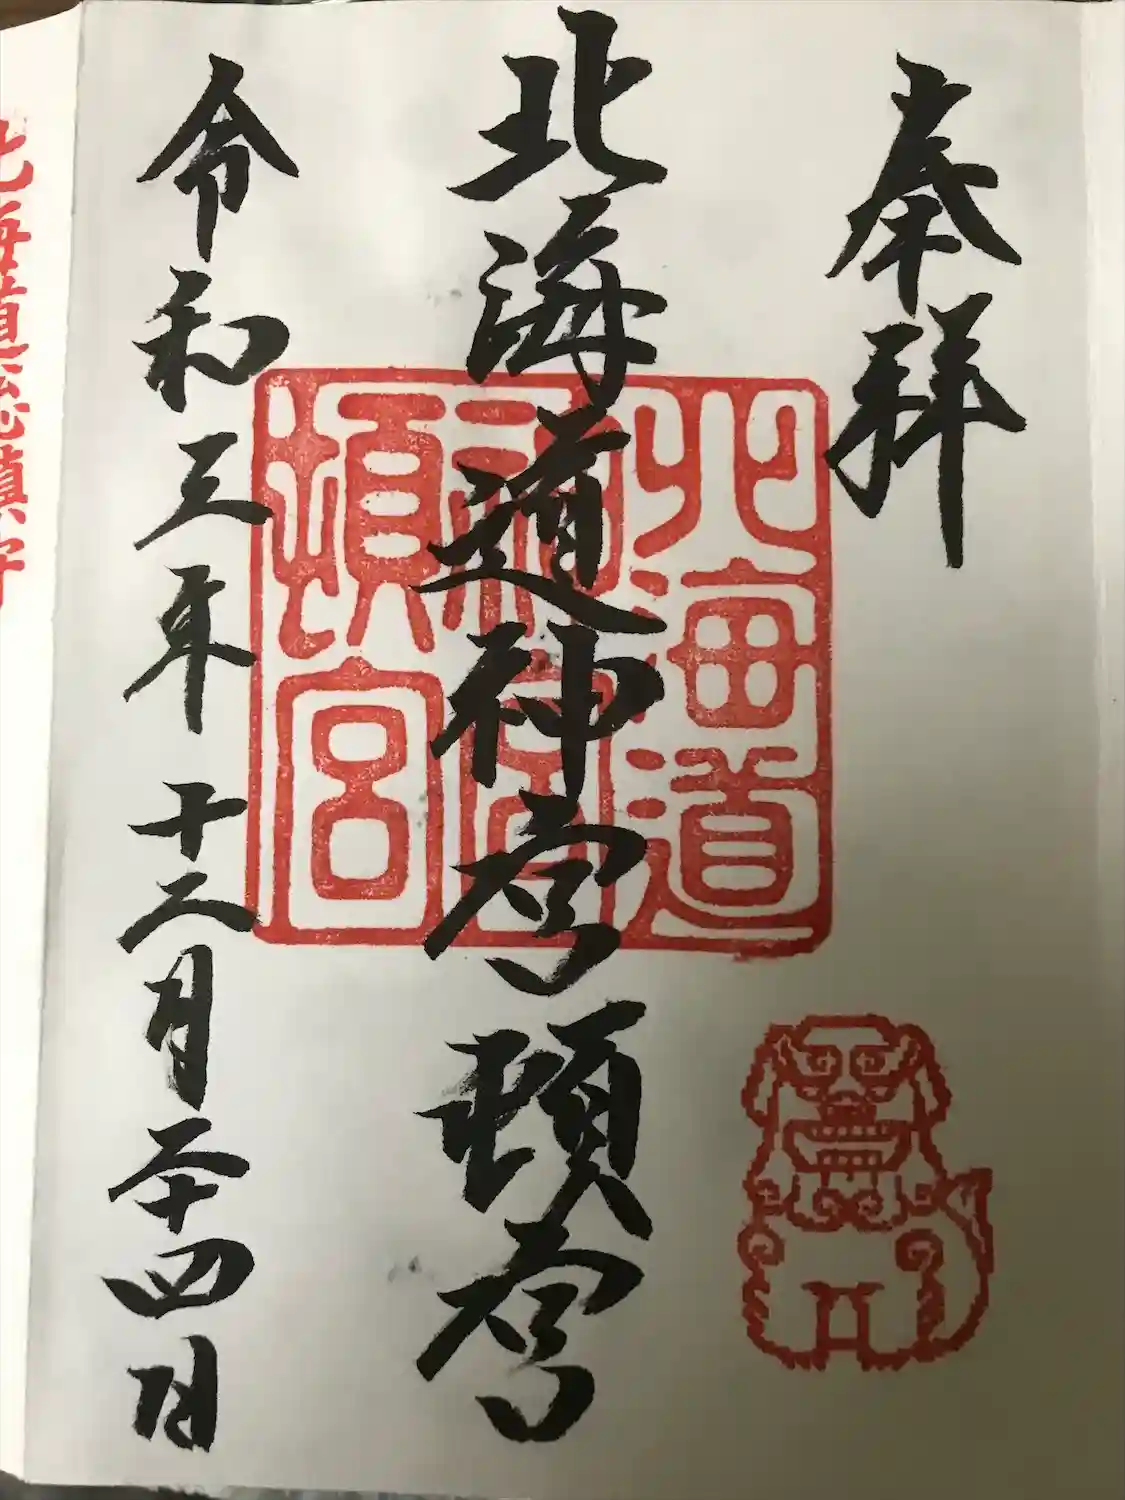 奉拝
北海道神宮頓宮
北海道
神宮
頓宮
令和三年十二月二十四日
北海道総鎮守